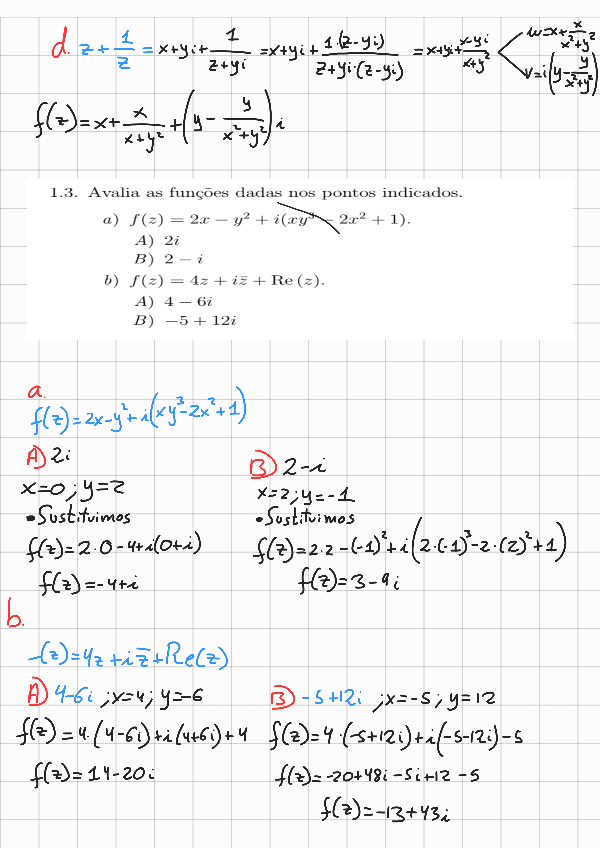 d. z + 1/z = x+yi + 1/(z+yi) = x+yi + 1·(z-yi)/(z+yi·(z-yi)) = x+yi + (x-yi)/(x+y²) u=x+x/(x²+y²) v=i(y-y/(x²+y²))
f(z) = x + x/(x+y²) + (y - y/(x²+y²))i
1.3. Avalia as funções dadas nos pontos indicados.
a) f(z) = 2x − y² + i(xy³ − 2x² + 1).
A) 2i
B) 2 − i
b) f(z) = 4z + iz̄ + Re (z).
A) 4 − 6i
B) −5 + 12i
a.
f(z)=2x-y²+i(xy³-2x²+1)
A) 2i
x=0; y=2
•Sustituimos
f(z)=2·0-4+i(0+i)
f(z)=-4+i
B) 2-i
x=2; y=-1
•Sustituimos
f(z)=2·2-(-1)²+i(2·(-1)³-2·(2)²+1)
f(z)=3-9i
b.
-(z)=4z+iz̄+Re(z)
A) 4-6i ; x=4; y=-6
f(z)=4·(4-6i)+i(4+6i)+4
f(z)=14-20i
B) -5+12i ; x=-5; y=12
f(z)=4·(-5+12i)+i(-5-12i)-5
f(z)=-20+48i-5i+12-5
f(z)=-13+43i